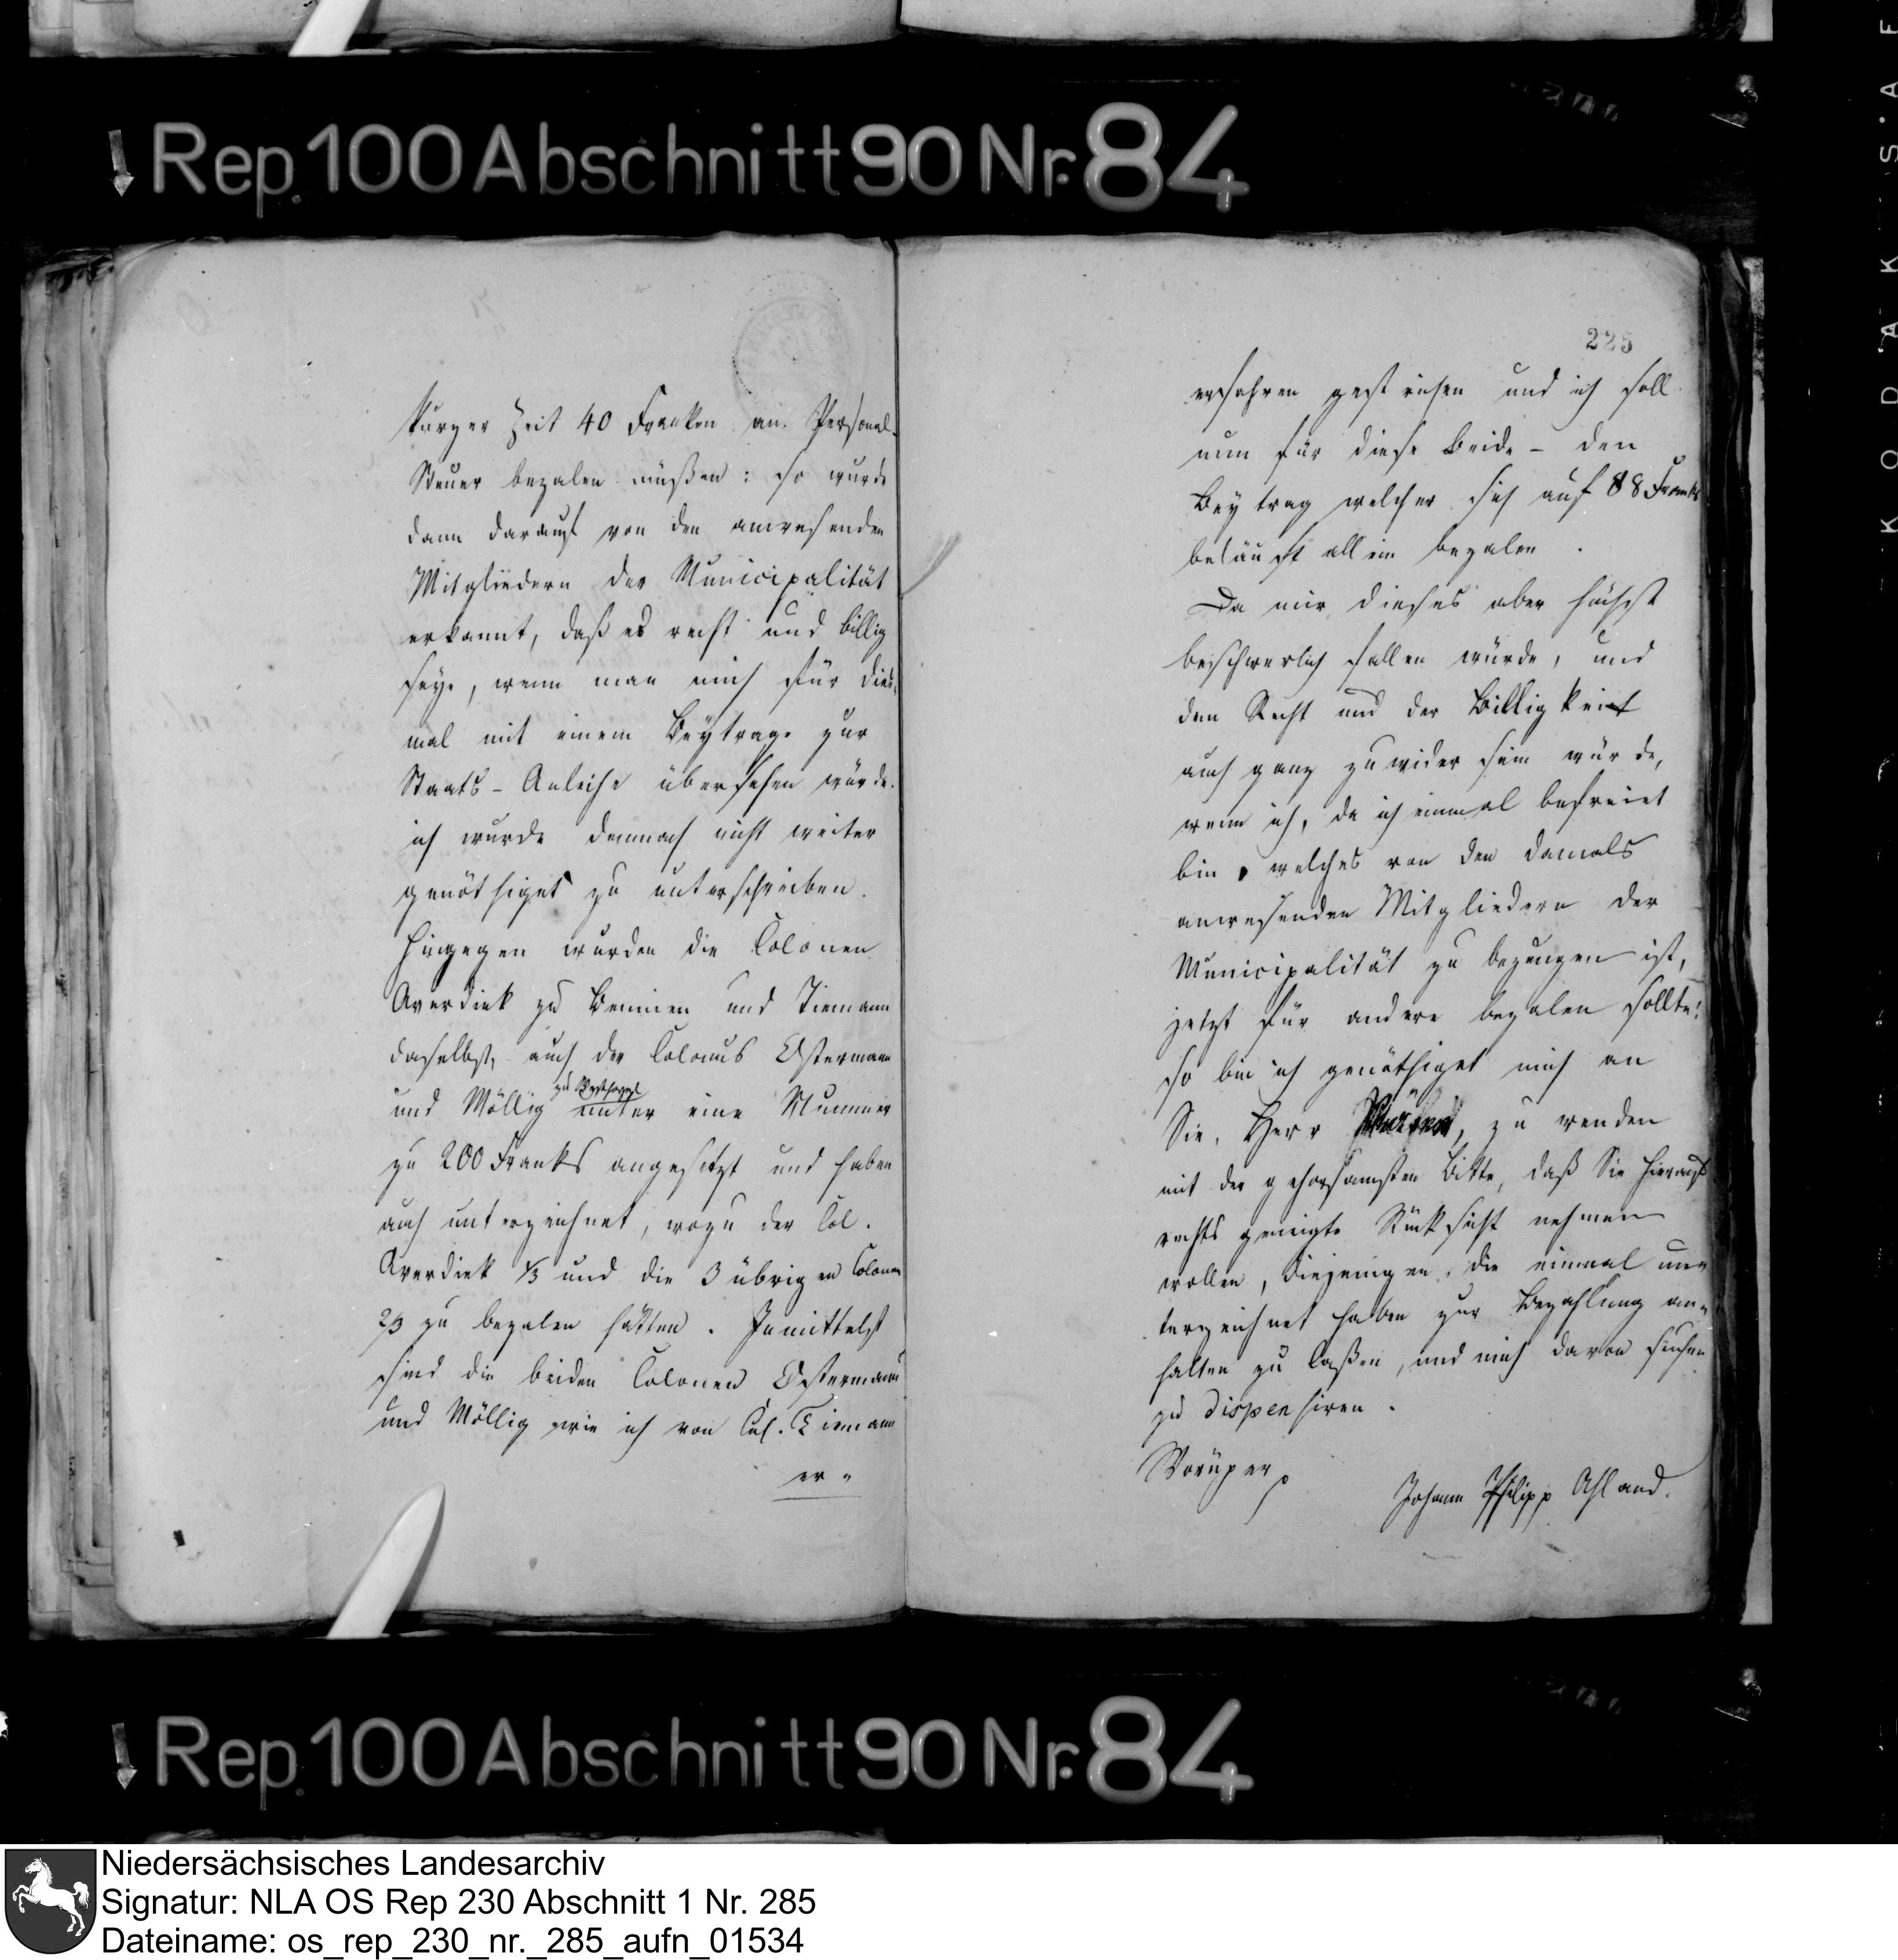 Rep. 100 Abschnitt 90 Nr. 84
kurzer Zeit 40 Franken an Personal-
Steuer bezalen müßen: so wurde
dann darauf von den anwesenden
Mitgliedern der Municipalität
erkannt, daß es recht und billig
seye, wenn man mich für dies-
mal mit einem Beytrage zur
Staats-Anleihe übersehen würde.
ich wurde demnach nicht weiter
genöthiget zu unterschreiben.
Hingegen wurden die Colonen
Averdiek zu Bennien und Tiemann
daselbst, auch der Colonus Ostermann
zu
und Möllig unter eine Nummer
zu 200 Franks angesetzt und haben
auch unterzeichnet, wozu der Col.
Averdiek 1/3 und die 3 übrigen Colonen
2/3 zu bezalen hätten. Inmittelst
sind die beiden Colonen Ostermann
und Möllig wie ich von Col. Tiemann
er-
225
erfahren gestrichen und ich soll
nun für diese beide - den
Beytrag welcher sich auf 88 Franks
beläuft allein bezalen.
Da mir dieses aber höchst
beschwerlich fallen würde, und
den Recht und der Billigkeit
auch ganz zuwider sein würde,
wenn ich, da ich einmal befreiet
bin, welches von den damals
anwesenden Mitgliedern der
Municipalität zu bezeugen ist,
jetzt für andere bezalen sollte:
so bin ich genöthiget mich an
Sie, Herr zu wenden
mit der gehorsamsten Bitte, daß Sie hierauf
rechts geneigte Rücksicht nehmen
wollen, diejenigen, die einmal un-
terzeichnet haben zur Bezahlung an-
halten zu laßen, und mich davon
zu dispensiren.
Johann Philipp Ahland.
Rep. 100 Abschnitt 90 Nr. 84
KODAK SAFE
Niedersächsisches Landesarchiv
Signatur: NLA OS Rep 230 Abschnitt 1 Nr. 285
Dateiname: os_rep_230_nr._285_aufn_01534